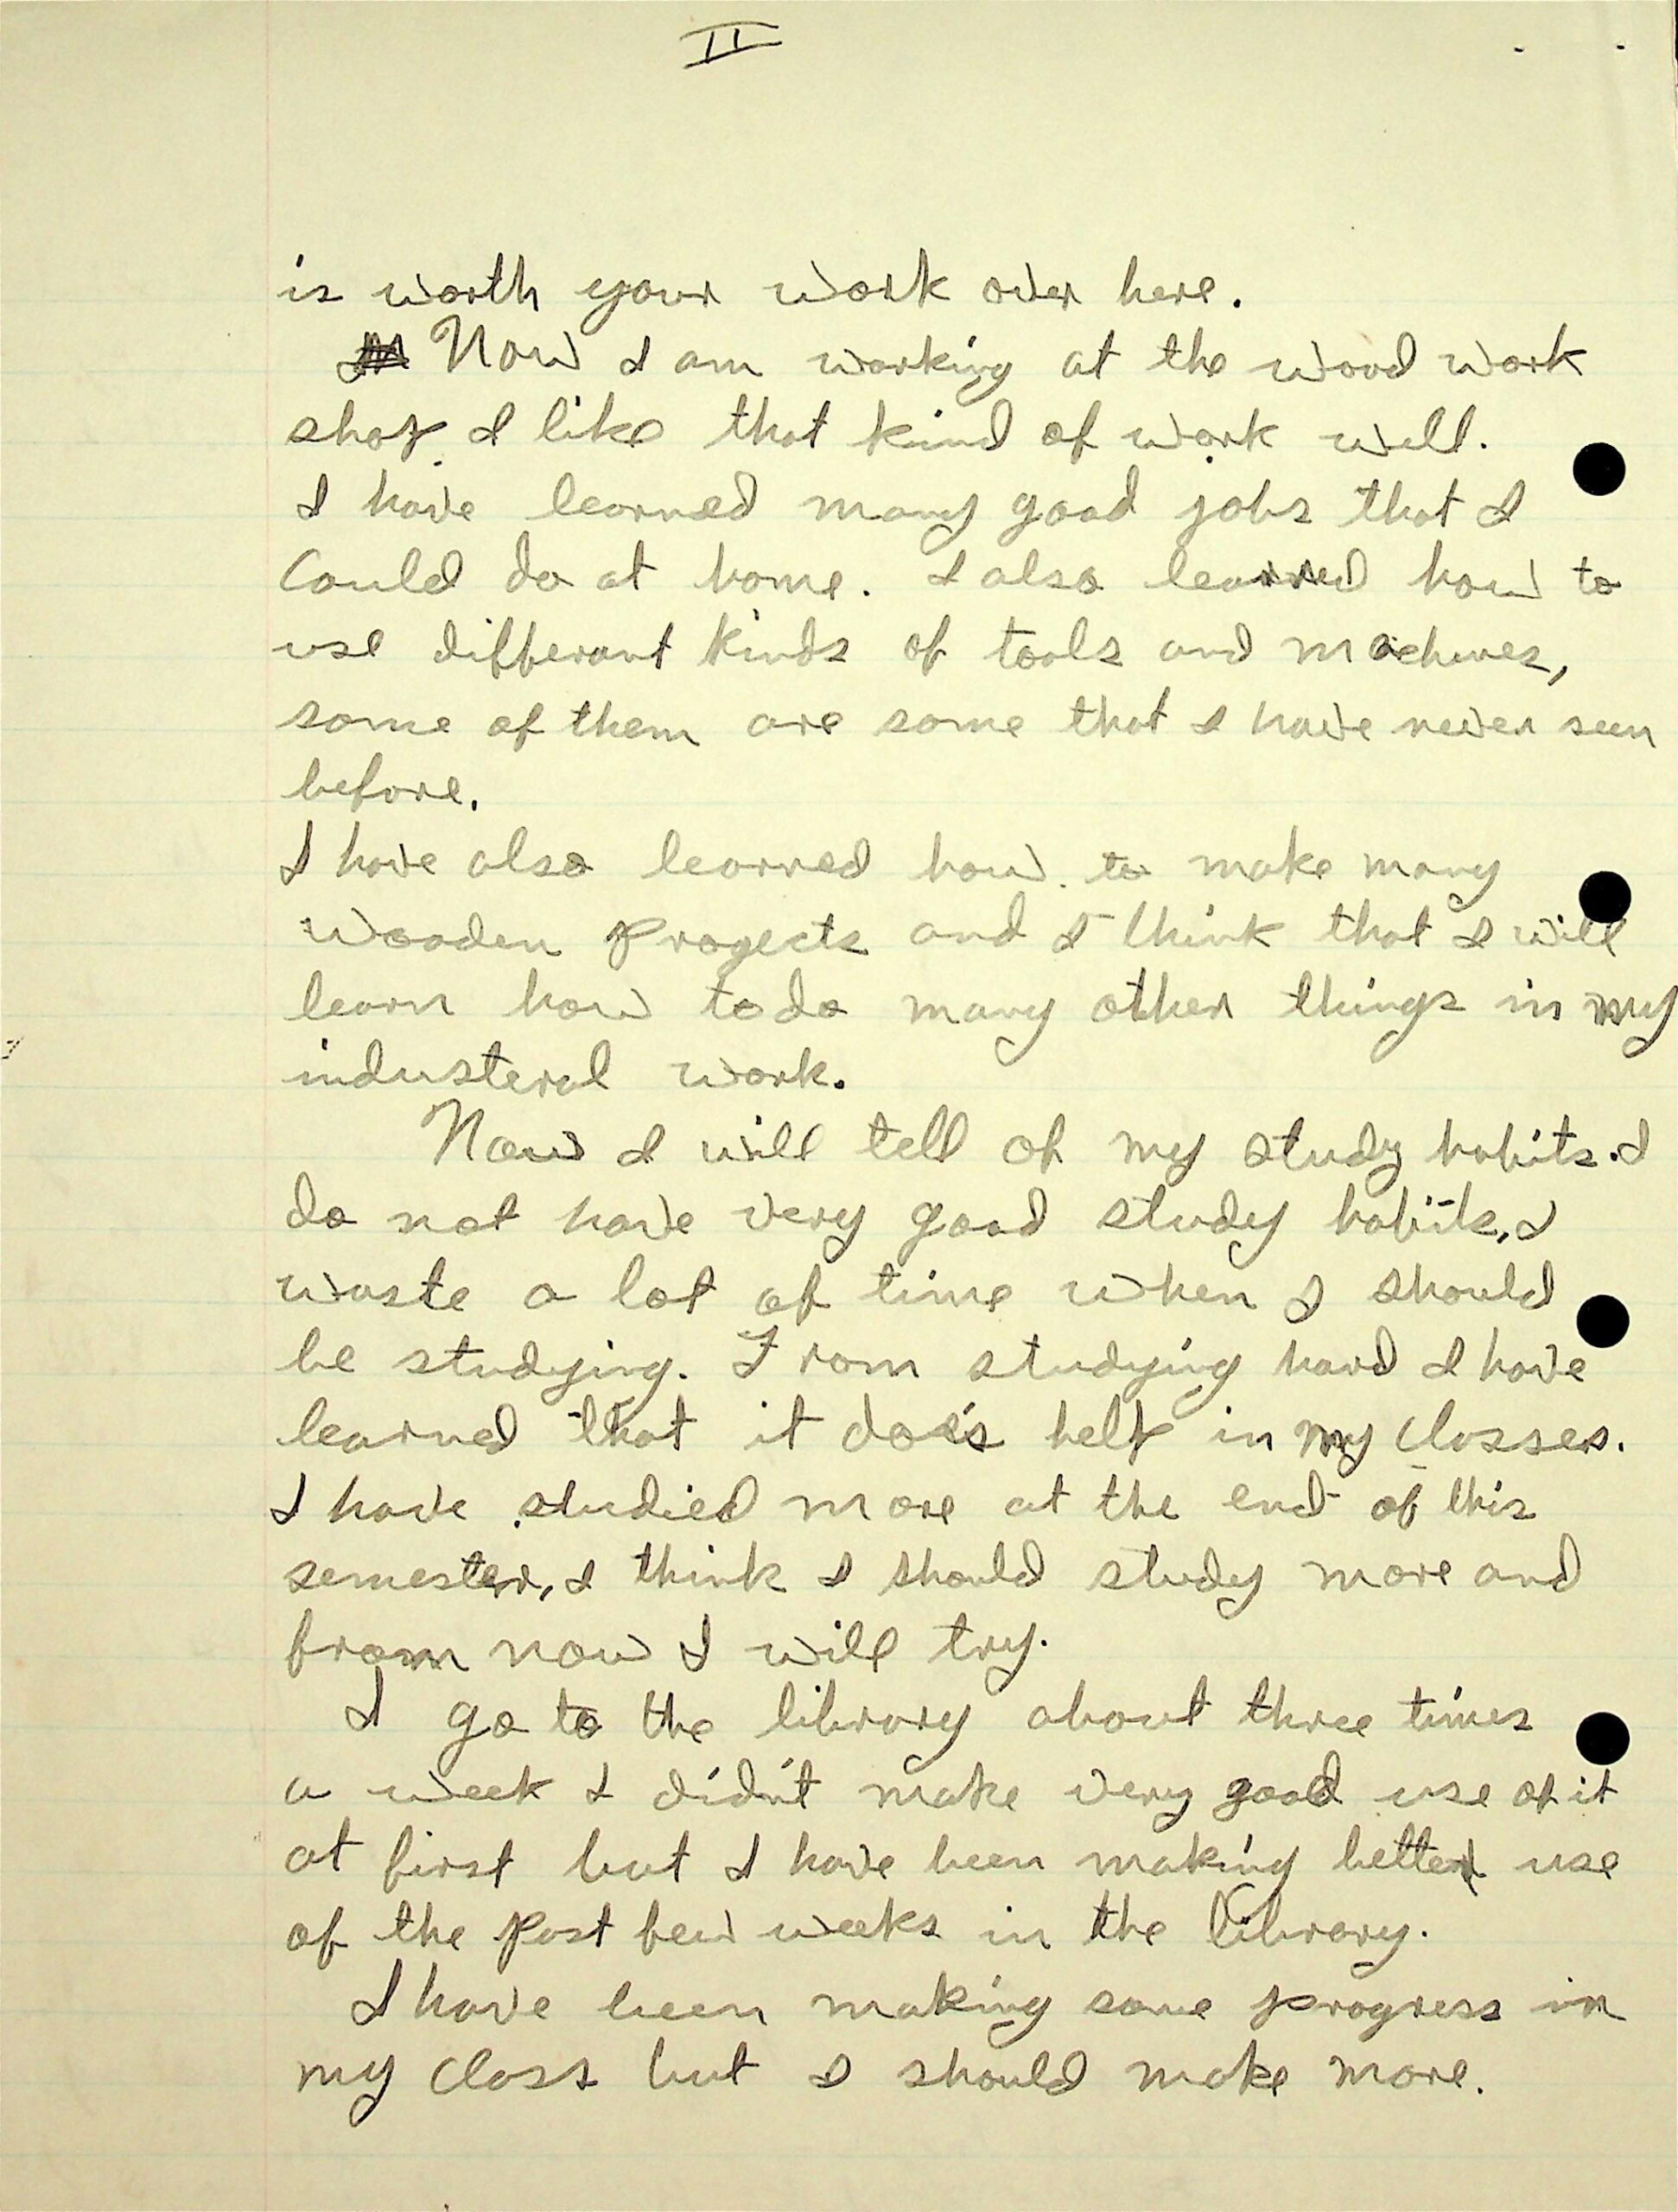 II
is worth your work over here.
Now I am working at the wood work
shop I like that kind of work well.
I have learned many good jobs that I
Could do at home. I also learned how to
use differant kinds of tools and machines,
some of them are some that I have never seen
before.
I have also learned how to make many
wooden progects and I think that I will
learn how to do many other things in my
industeral work.
Now I will tell of my study habits. I
do not have very good study habits, I
waste a lot of time when I should
be studying. From studying hard I have
learned that it does help in my classes.
I have studied more at the end of this
semester, I think I should study more and
from now I will try.
I go to the library about three times
a week I did'nt make very good use of it
at first but I have been making better use
of the past few weeks in the library.
I have been making some progress in
my class but I should make more.